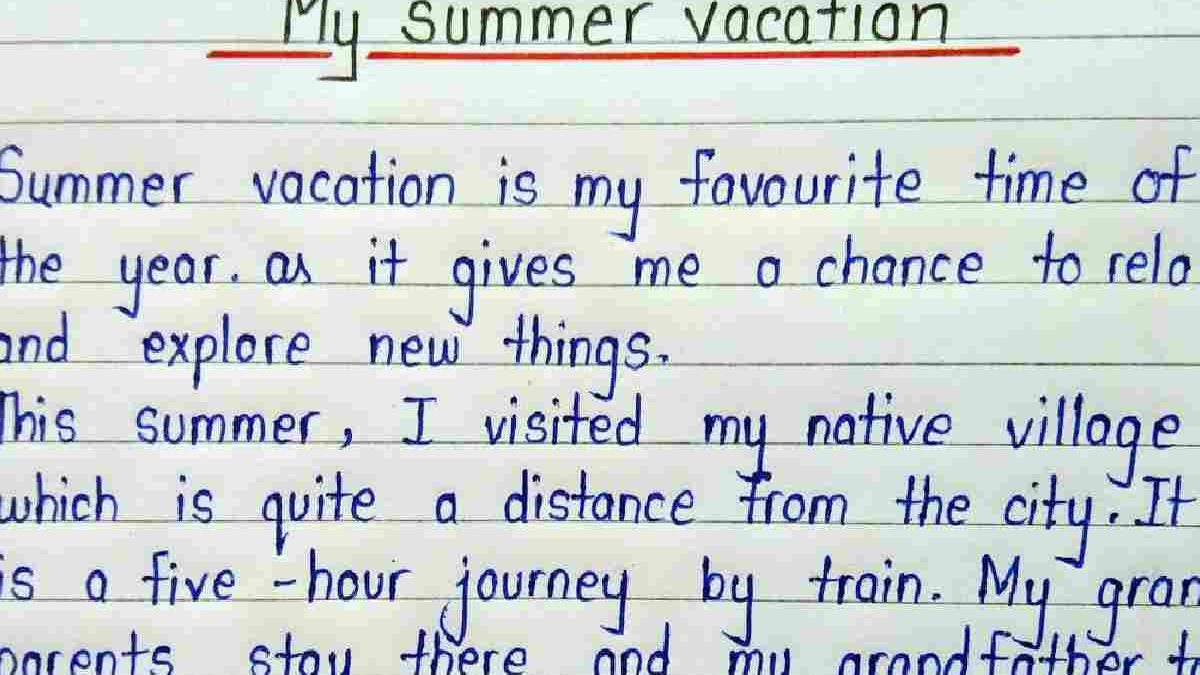 My Summer vacation
Summer vacation is my favourite time of
the year. as it gives me a chance to rela
and explore new things.
This summer, I visited my native village
which is quite a distance from the city. It
is a five-hour journey by train. My gran
parents stay there and my grandfather t